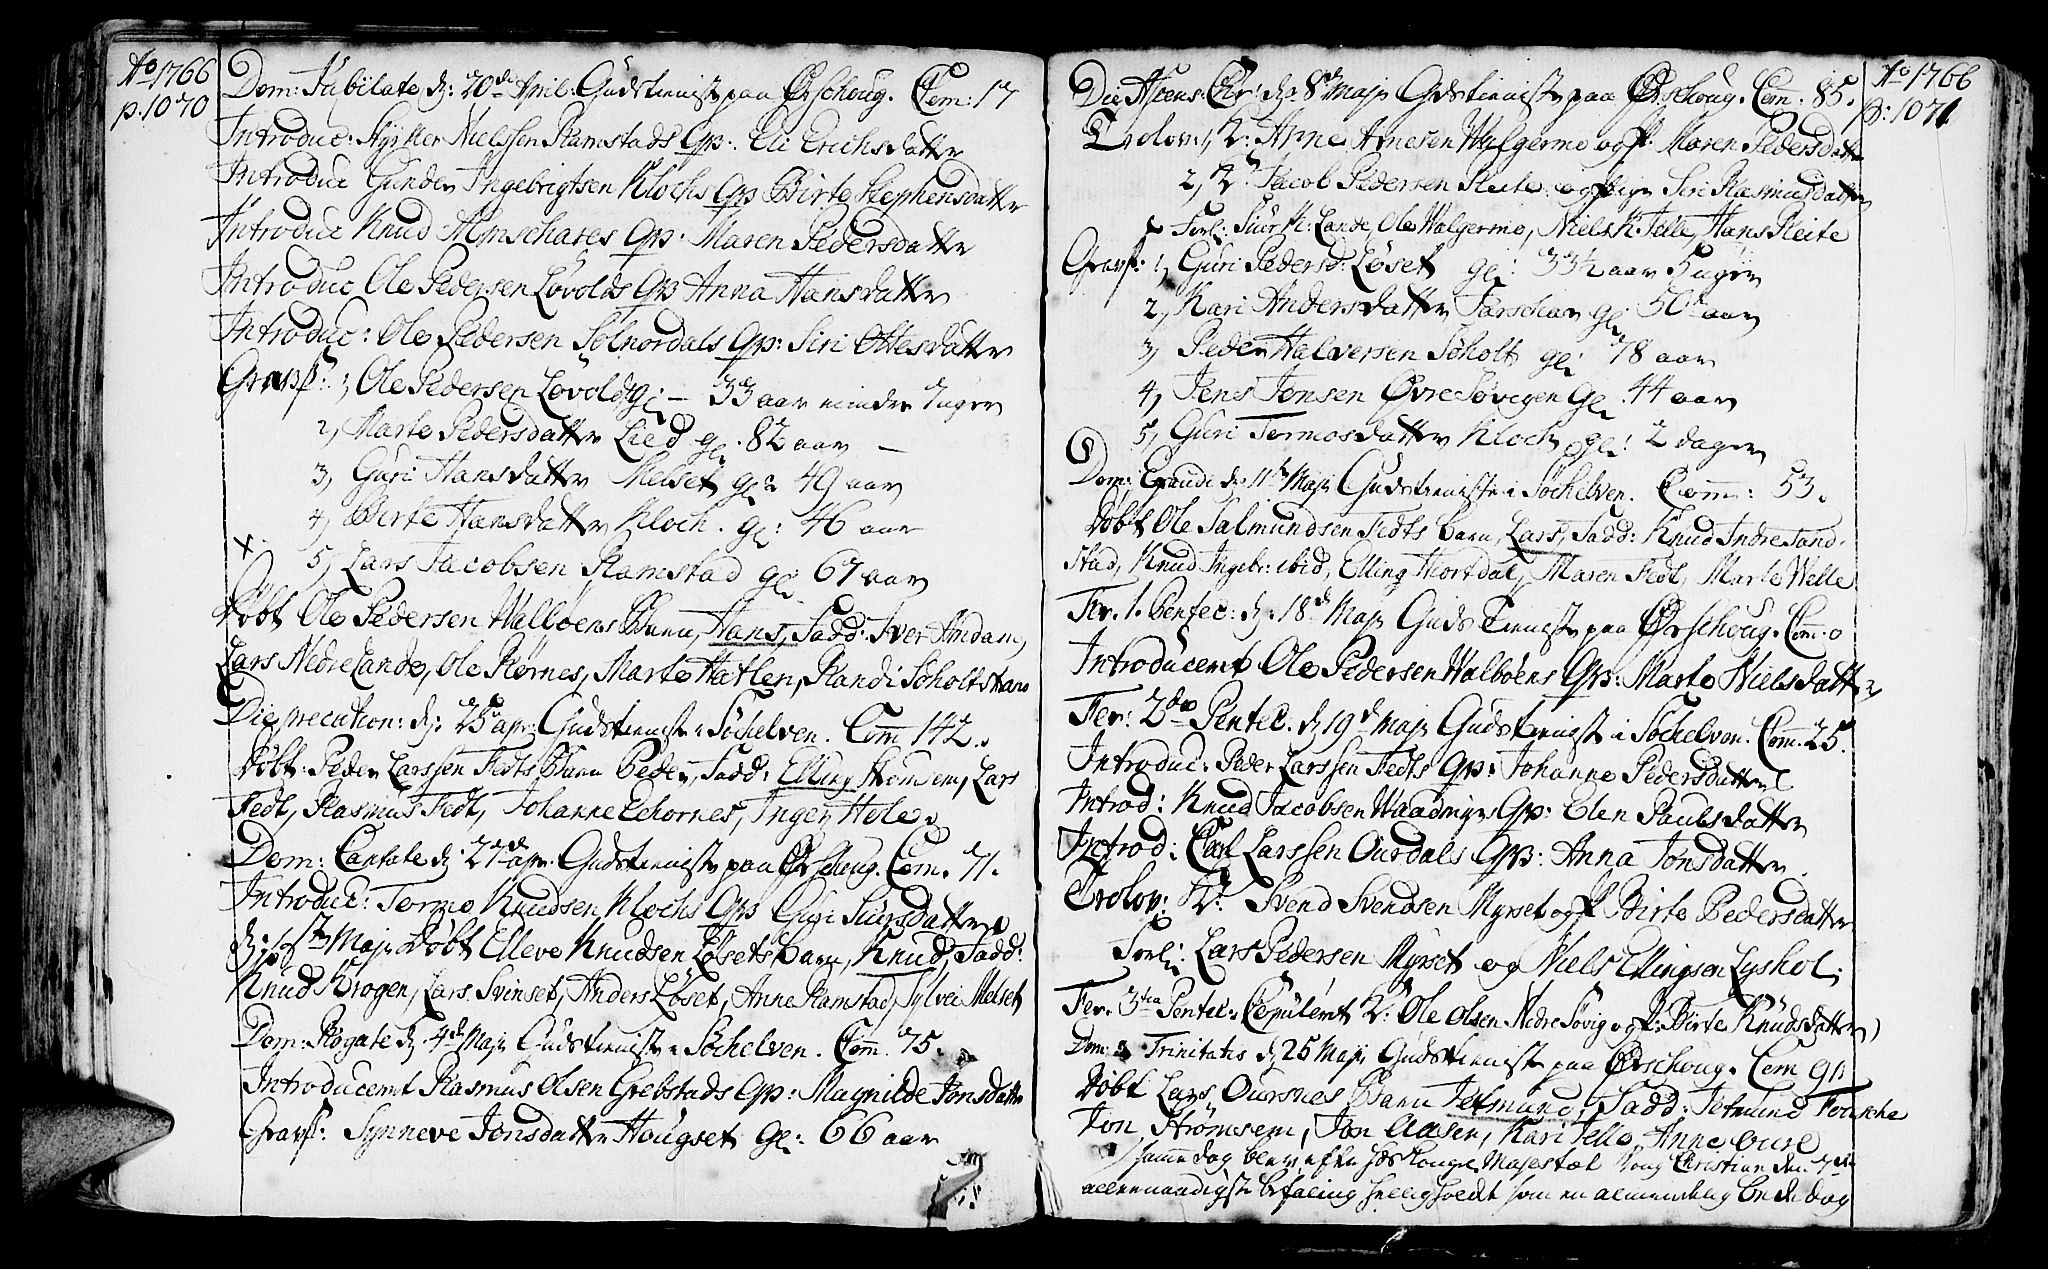 Ao 1766
p. 1070
Dom: Jubilate d: 20de April Gudstienist paa Ørschoug. Com: 17
Introduc: Nielssen Ramstads Qvi: Eli Erichsdatter
Introduc Gunder Ingebrigtsen Klochs Qvi Birte Stephensdatter
Introduc Knud Qvi: Maren Pedersdatter
Introduc Ole Pedersen Løvolds Qvi Anna Hansdatter
Introduc: Ole Pedersen Solnordals Qvi: Siri Ottesdatter
Gravf: 1, Ole Pedersen Løvold gl: – 33 aar minder 7 uger
2, Marte Pedersdatter Lied gl. 82 aar –
3, Guri Hansdatter Melset gl: 49 aar
4, Birte Hansdatter Kloch. gl: 46 aar
x.
5, Lars Jacobsen Ramstad gl: 67 aar
Døbt Ole Pedersen Walbøens Barn, Hans, Fadd: Iver Amdam,
Lars Nedre Lande, Ole Rørnes, Marte Hatlen, Randi Søholtstrand
Die precation: d: 25 apr: Gudstienist i Søchelven. Com 142.
Døbt: Peder Larssen Fedts Barn Peder, Fadd: Elling Strømsem, Lars
Fedt, Rasmus Fedt, Johanne Echornes, Inger Hole.
Dom: Cantate d: 27de apr. Gudstienist paa Ørschoug. Com. 71.
Introduc: Tormo Knudsen Klochs Qvi Guri Siursdatter
d: 1ste Maji Døbt Elleve Knudsen Løsets Barn, Knud, Fadd:
Knud Krogen, Lars Svinset, Anders Løset, Anne Ramstad, Sylvei Melset
Dom: Rogate d: 4de Maji Gudstienist i Søchelven. Com. 75.
Introducerit Rasmus Olsen Grebstads Qvi: Magnilde Jonsdatter
Gravf: Synneve Jonsdatter Hougset gl: 66 aar
Ao 1766
p: 1071
Die Ascens: Chr: d: 8de Maji Gudstienist paa Ørschoug. Com: 85.
Trolov: 1, K: Arne Arnesen Walgermo og P: Maren Pedersdatter
2, K: Jacob Pedersen Reite og Pige Siri Rasmusdatter
Forl: Siur K: Lande, Ole Walgermo, Niels K: Jelle, Hans Reite
Gravf: 1, Guri Pedersd: Løset gl: 33½ aar 5 uger
2, Kari Andersdatter gl: 50 aar
3, Peder Halversen Søholt gl: 78 aar
4, Jens Jonsen Øvre Søvigen gl: 44 aar
5, Guri Tormosdatter Kloch gl: 2 dager
Dom: Exaudi d: 11te Maji Gudstieniste i Søchelven. Com: 53.
Døbt Ole Salmundsen Fedts Barn, Lars, Fadd: Knud Indre Tand-
stad, Knud Ingebr: ibid, Elling Hiortdal, Maren Fedt, Marte Welle
Fer. 1. Pentec: d: 18de Maji Guds Tienist paa Ørschoug. Com. 0
Introducerit Ole Pedersen Walbøens Qvi: Marte Nielsdatter
Fer: 2da Pentec. d: 19de Maji Gudstienist i Søchelven. Com. 25.
Introduc: Peder Larssen Fedts Qvi: Johanne Pedersdatter
Introd: Knud Jacobsen Qvi: Elen Paulsdatter
Introd: Carl Larssen Ourdals Qvi: Anna Jonsdatter.
Trolov: K: Svend Svendsen Myrset og P Birte Pedersdatter
Forl: Lars Pedersen Myrset og Niels Ellingsen Lyshol:
Fer. 3tia Pentec: Copulerit K: Ole Olsen Nedre Søvig og P: Birte Knudsdatter
Dom: Trinitatis d: 25 Maji Gudstienist paa Ørschoug. Com 90
Døbt Lars Oursnes Barn Jetmund, Fadd: Jetmund
Jon Strømsem, Jon Aasen, Kari Jelle, Anne Oure
samme dag blev efter Hds Kongl: Majestæt Kong Christian den 7de
allernaadigste befaling helligholdt som en almindelig Bededag